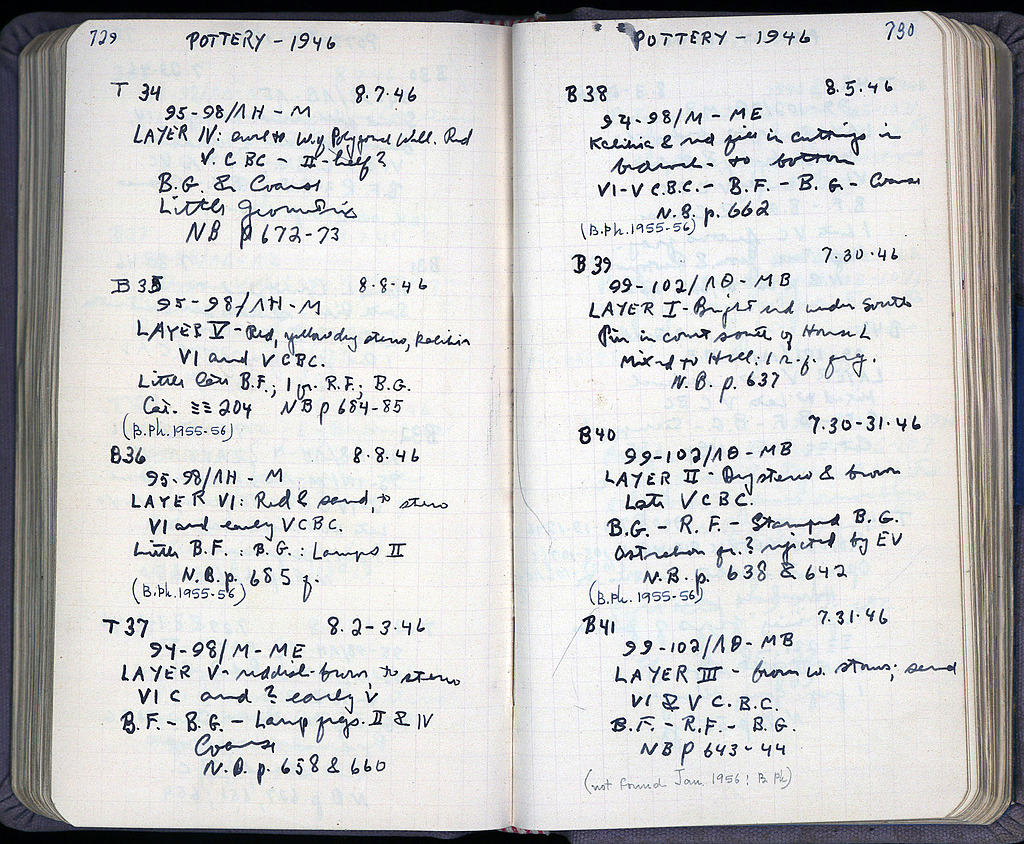 729
POTTERY - 1946
T 34 8.7.46
95-98/ΛH - M
LAYER IV: Polygonal Wall. Red
V. C BC - II - half?
B.G. & Coarse
Little Geometric
NB p 672-73
B 35 8.8.46
95-98/ΛH - M
LAYER V - Red, yellow dry stereo, kalichia
VI and V C BC.
Little late B.F.; 1 fr. R.F.; B.G.
Cat. 204 NB p 684-85
(B.Ph. 1955-56)
B36 8.8.46
95-98/ΛH - M
LAYER VI: Red & sand, to stereo
VI and early V C BC.
Little B.F. : B.G. : Lamps II
N.B. p. 685 f.
(B.Ph. 1955-56)
T 37 8.2-3.46
94-98/M - ME
LAYER V - reddish-brown, to stereo
VI C and ? early V
B.F. - B.G. - Lamp frgs. II & IV
Coarse
N.B. p. 658 & 660
730
POTTERY - 1946
B38 8.5.46
94-98/M - ME
Kalichia & red fill in cuttings in
bedrock - to bottom
VI-V C.B.C. - B.F. - B.G. - Coarse
N.B. p. 662
(B.Ph. 1955-56)
B 39 7.30.46
99-102/ΛΘ - MB
LAYER I - Bright red under South
Pier in court south of House L
Mixed to Hell: 1 r.f. frg.
N.B. p. 637
B40 7.30-31.46
99-102/ΛΘ - MB
LAYER II - Dry stereo & brown
Late V C BC.
B.G. - R.F. - Stamped B.G.
Ostrakon fr.? rejected by EV
N.B. p. 638 & 642
(B.Ph. 1955-56)
B41 7.31.46
99-102/ΛΘ - MB
LAYER III - brown w. stones; sand
VI & V C. B.C.
B.F. - R.F. - B.G.
NB p 643-44
(not found Jan. 1956: B Ph)